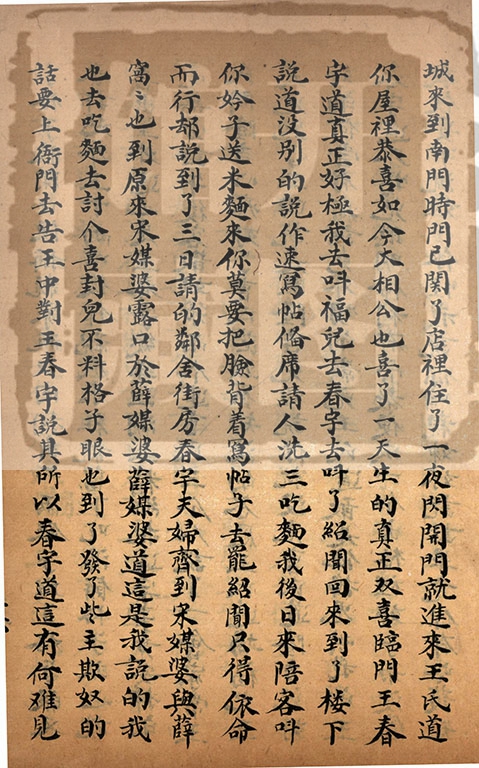 城來到南門時門已関了店裡住了一夜閃開門就進來王氏道
你屋裡恭喜如今大相公也喜了一天生的真正双喜臨門王春
宇道真正好極我去呌福兒去春宇去呌了紹聞回來到了楼下
說道没別的說作速寫帖俻席請人洗三吃麵我後日來陪客呌
你妗子送米麵來你莫要把臉背着寫帖子去罷紹聞只得依命
而行却說到了三日請的鄰舍街房春宇夫婦齊到宋媒婆與薛
窩〻也到原來宋媒婆露口於薛媒婆薛媒婆道這是我說的我
也去吃麵去討个喜封兒不料格子眼也到了發了些主欺奴的
話要上衙門去告王中對王春宇說其所以春宇道這有何难見